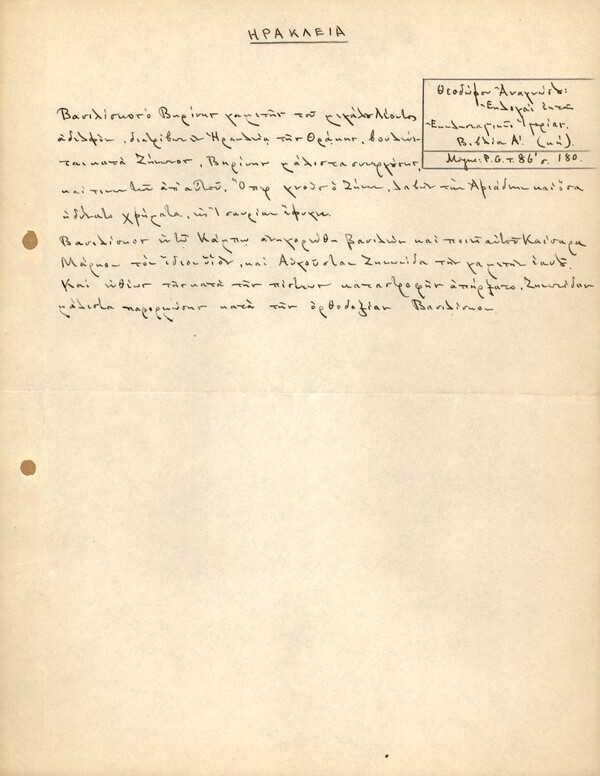 ΗΡΑΚΛΕΙΑ
Θεοδώρου Ἀναγνώστ:
Ἐκλογαὶ ἐκ τῆς
Ἐκκλησιαστικῆς Ἱστορίας.
Βιβλία Α'. (κή).
Migne: P.G. τ. 86' σ. 180.
Βασιλίσκος ὁ Βηρίνης γαμετῆς τοῦ μεγάλου Λέοντος
ἀδελφὸς, διατρίβων ἐν Ἡρακλείᾳ τῆς Θράκης, βουλεύε-
ται κατὰ Ζήνωνος, Βηρίνης μάλιστα συνεργούσης,
καί τινων τῶν ἀπ' αὐτοῦ. Ὅπερ γνοὺς ὁ Ζήνων, λαβὼν τὴν Ἀριάδνην καὶ ὅσα
ἠδύνατο χρήματα, εἰς Ἰσαυρίαν ἔφυγεν.
Βασιλίσκος ἐν τῷ Κάμπῳ ἀνηγορεύθη βασιλεὺς καὶ ποιεῖ αὐτοῦ Καίσαρα
Μάρκον τὸν ἴδιον υἱὸν, καὶ Αὐγούσταν Ζηνωνίδα τὴν γαμετὴν ἑαυτοῦ.
Καὶ εὐθέως τῆς κατὰ τῆς πίστεως καταστροφῆς ἀπήρξατο, Ζηνωνίδος
μάλιστα παρορμώσης κατὰ τῆς ὀρθοδοξίας Βασιλίσκον.